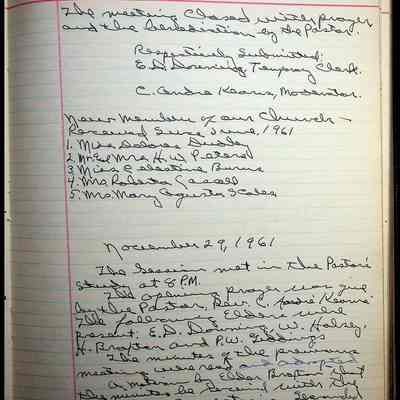 The meeting closed with prayer
and the benediction by the Pastor.
Respectively Submitted:
E.D. Downing Temporary Clerk.
C. Andre Kearns, Moderator.
New Members of our Church -
Received Since June, 1961
1. Miss Dolores Dudley
2. Mr. & Mrs. H.W. Peters
3 Miss Celestine Burns
4. Mrs. Roberta
5. Mrs. Mary Agusta Scales
November 29, 1961
The Session met in the Pastor's
study at 8 P.M.
The opening prayer was give
by the Pastor, Rev. C. Andre Kearns
The following Elders were
present, E.D. Downing, W. Halsey,
H. Braxton and P.W. Giddings
The minutes of the previous
meeting were read and adopted
A motion by Elder Braxton that
the minutes be with the